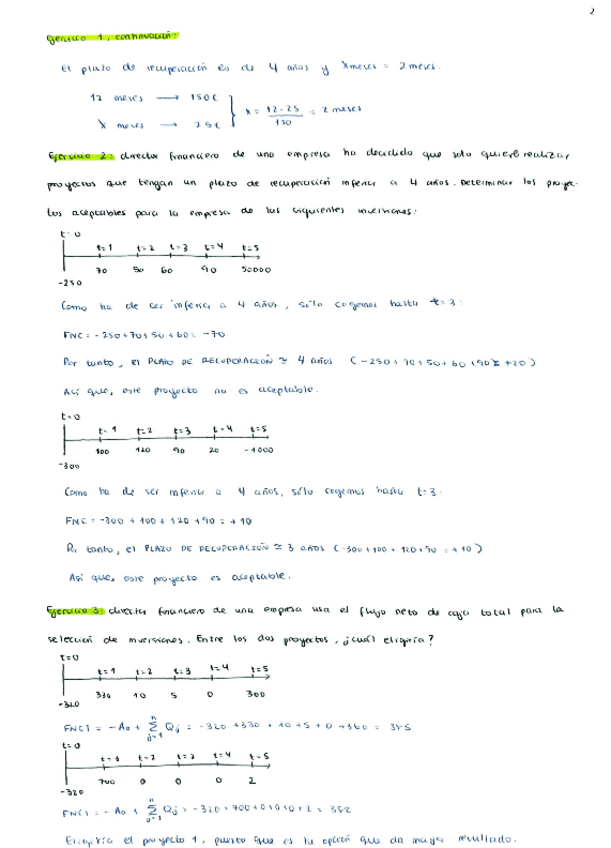 2
Ejercicio 1, continuación:
El plazo de recuperación es de 4 años y X meses = 2 meses.
12 meses → 150€
X meses → 25€
x = 12·25 / 150 = 2 meses
Ejercicio 2: director financiero de una empresa ha decidido que solo quiere realizar
proyectos que tengan un plazo de recuperación inferior a 4 años. Determinar los proyec-
tos aceptables para la empresa de las siguientes inversiones:
t=0
t=1 t=2 t=3 t=4 t=5
70 50 60 90 50000
-250
Como ha de ser inferior a 4 años, sólo cogemos hasta t=3:
FNC = -250+70+50+60 = -70
Por tanto, el PLAZO DE RECUPERACIÓN ≃ 4 años (-250+70+50+60+90 = +20)
Así que, este proyecto no es aceptable.
t=0
t=1 t=2 t=3 t=4 t=5
100 120 90 20 -1000
-300
Como ha de ser inferior a 4 años, sólo cogemos hasta t=3:
FNC = -300+100+120+90 = +10
Por tanto, el PLAZO DE RECUPERACIÓN ≃ 3 años (-300+100+120+90 = +10)
Así que, este proyecto es aceptable.
Ejercicio 3: director financiero de una empresa usa el flujo neto de caja total para la
selección de inversiones. Entre los dos proyectos, ¿cuál elegiría?
t=0
t=1 t=2 t=3 t=4 t=5
330 10 5 0 300
-320
FNC1 = -A₀ + Σ Qj = -320+330+10+5+0+360 = 385
n
j=1
t=0
t=1 t=2 t=3 t=4 t=5
700 0 0 0 2
-320
FNC1 = -A₀ + Σ Qj = -320+700+0+0+0+2 = 382
n
j=1
Elegiría el proyecto 1, puesto que es la opción que da mayor resultado.